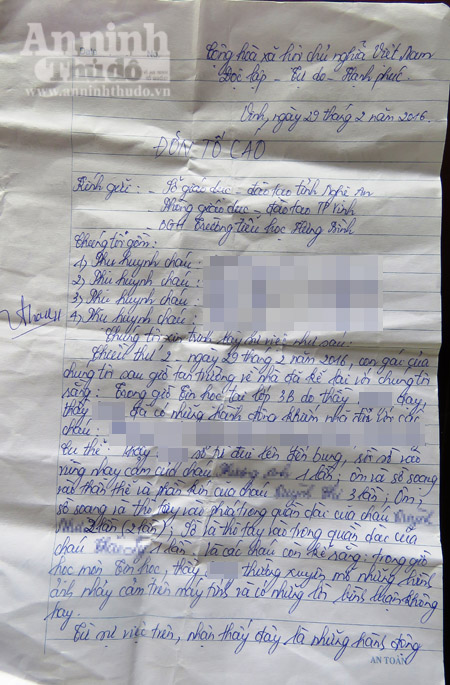 An ninh
Thủ đô
www.anninhthudo.vn
Cộng hòa xã hội chủ nghĩa Việt Nam
Độc lập - Tự do - Hạnh phúc
Vinh, ngày 29 tháng 2 năm 2016.
ĐƠN TỐ CAO
Kính gửi: - Sở giáo dục - đào tạo tỉnh Nghệ An
- Phòng giáo dục - đào tạo TP Vinh
- BGH Trường tiểu học Hưng Bình
Chúng tôi gồm:
1) Phụ huynh cháu:
2) Phụ huynh cháu:
3) Phụ huynh cháu:
4) Phụ huynh cháu:
Chúng tôi xin trình bày sự việc như sau:
Chiều thứ 2 - ngày 29 tháng 2 năm 2016, con gái của
chúng tôi sau giờ tan trường về nhà đã kể lại với chúng tôi
rằng: Trong giờ Tin học tại lớp 3B do thầy dạy,
thầy đã có những hành động khiến nhã đối với các
cháu:
Cụ thể: thầy sờ từ đùi lên đến bụng, sờ soạ vào
vùng nhạy cảm của cháu 1 lần; ôm và sờ soạng
vào thân thể và phần kín của cháu 3 lần; Ôm,
sờ soạng và thò tay vào phía trong quần dài của cháu
2 lần (2 lần), sờ và thò tay vào trong quần dài của
cháu 1 lần. Và các cháu còn kể rằng: trong giờ
học môn Tin học, thầy thường xuyên mở những hình
ảnh nhạy cảm trên máy tính và có những lời bình luận không
hay.
Từ sự việc trên, nhận thấy đây là những hành động
AN TOÀN